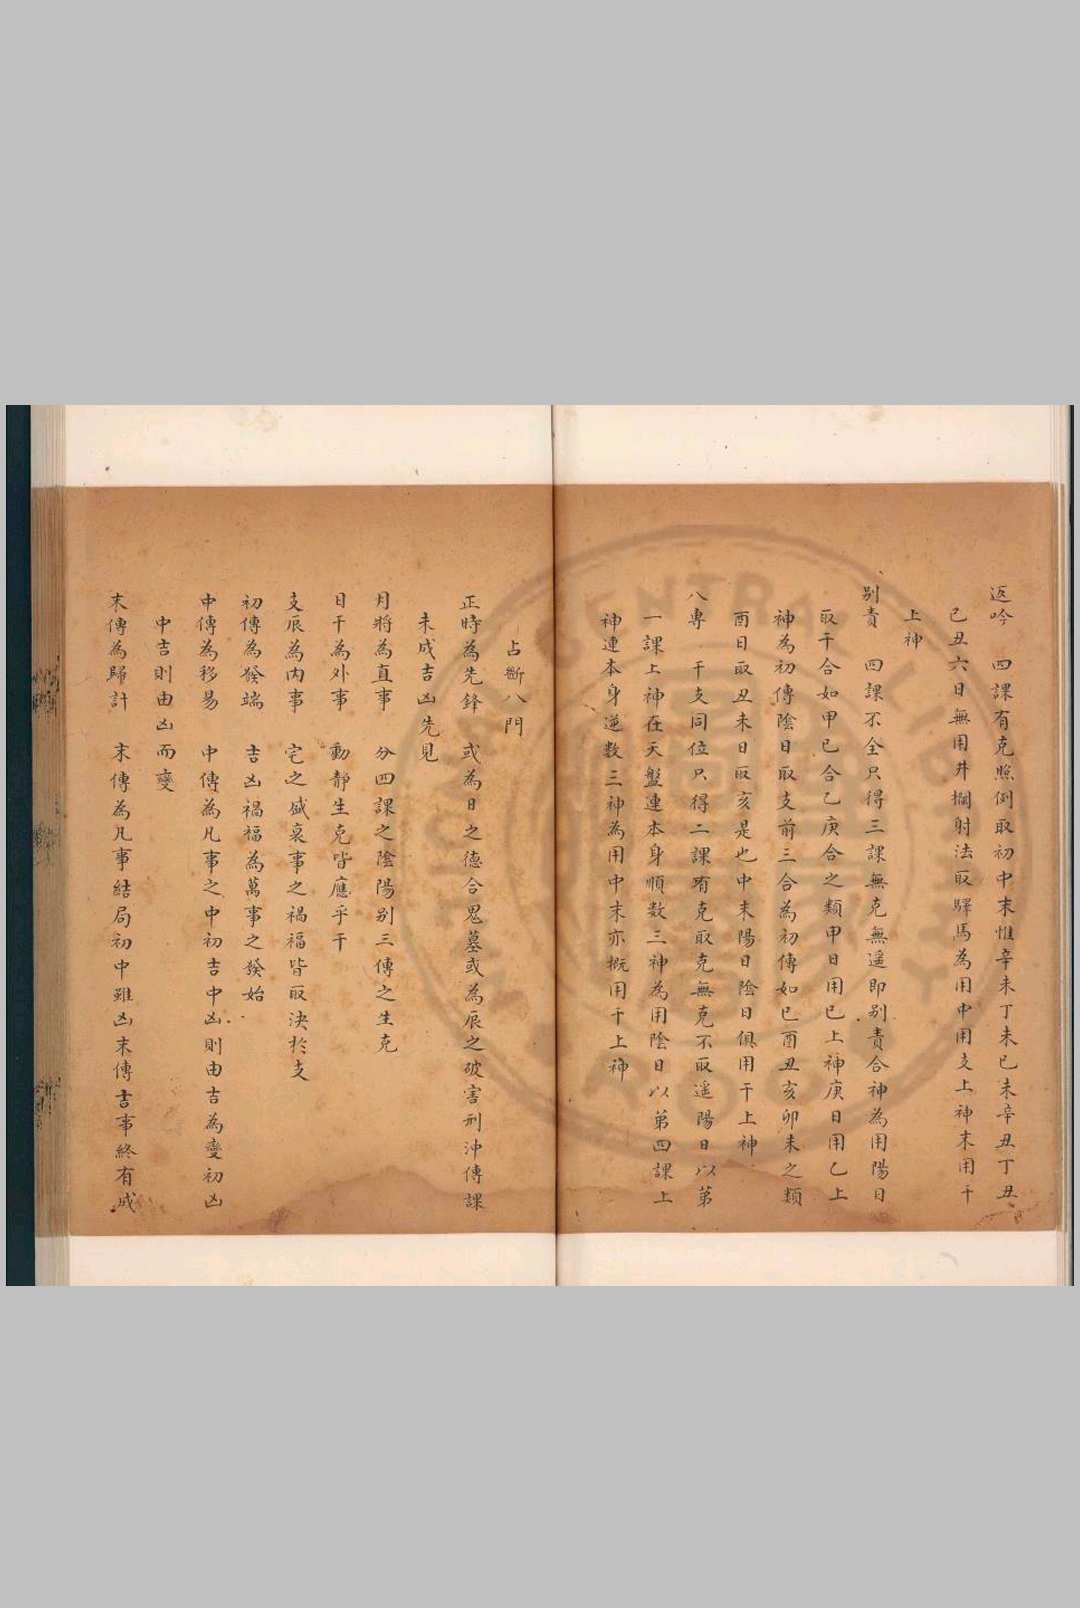 返吟　四課有克照倒取初中末惟辛未丁未巳未辛丑丁丑
己丑六日無用井欄射法取驛馬為用中用支上神末用干
上神
别責　四課不全只得三課無克無遥即别責合神為用陽日
取干合如甲己合乙庚合之類甲日用巳上神庚日用乙上
神為初傳陰日取支前三合為初傳如巳酉丑亥卯未之類
酉日取丑未日取亥是也中末陽日陰日俱用干上神
八專　干支同位只得二課有克取克無克不取遥陽日以第
一課上神在天盤連本身順数三神為用陰日以第四課上
神連本身逆数三神為用中末亦概用干上神
占斷八門
正時為先鋒　或為日之德合鬼墓或為辰之破害刑沖傳課
未成吉凶先見
月將為直事　分四課之陰陽别三傳之生克
日干為外事　動静生克皆應乎干
支辰為内事　宅之盛衰事之禍福皆取决於支
初傳為發端　吉凶禍福為萬事之發始
中傳為移易　中傳為凡事之中初吉中凶則由吉為變初凶
中吉則由凶而變
末傳為歸計　末傳為凡事結局初中雖凶末傳吉事終有成